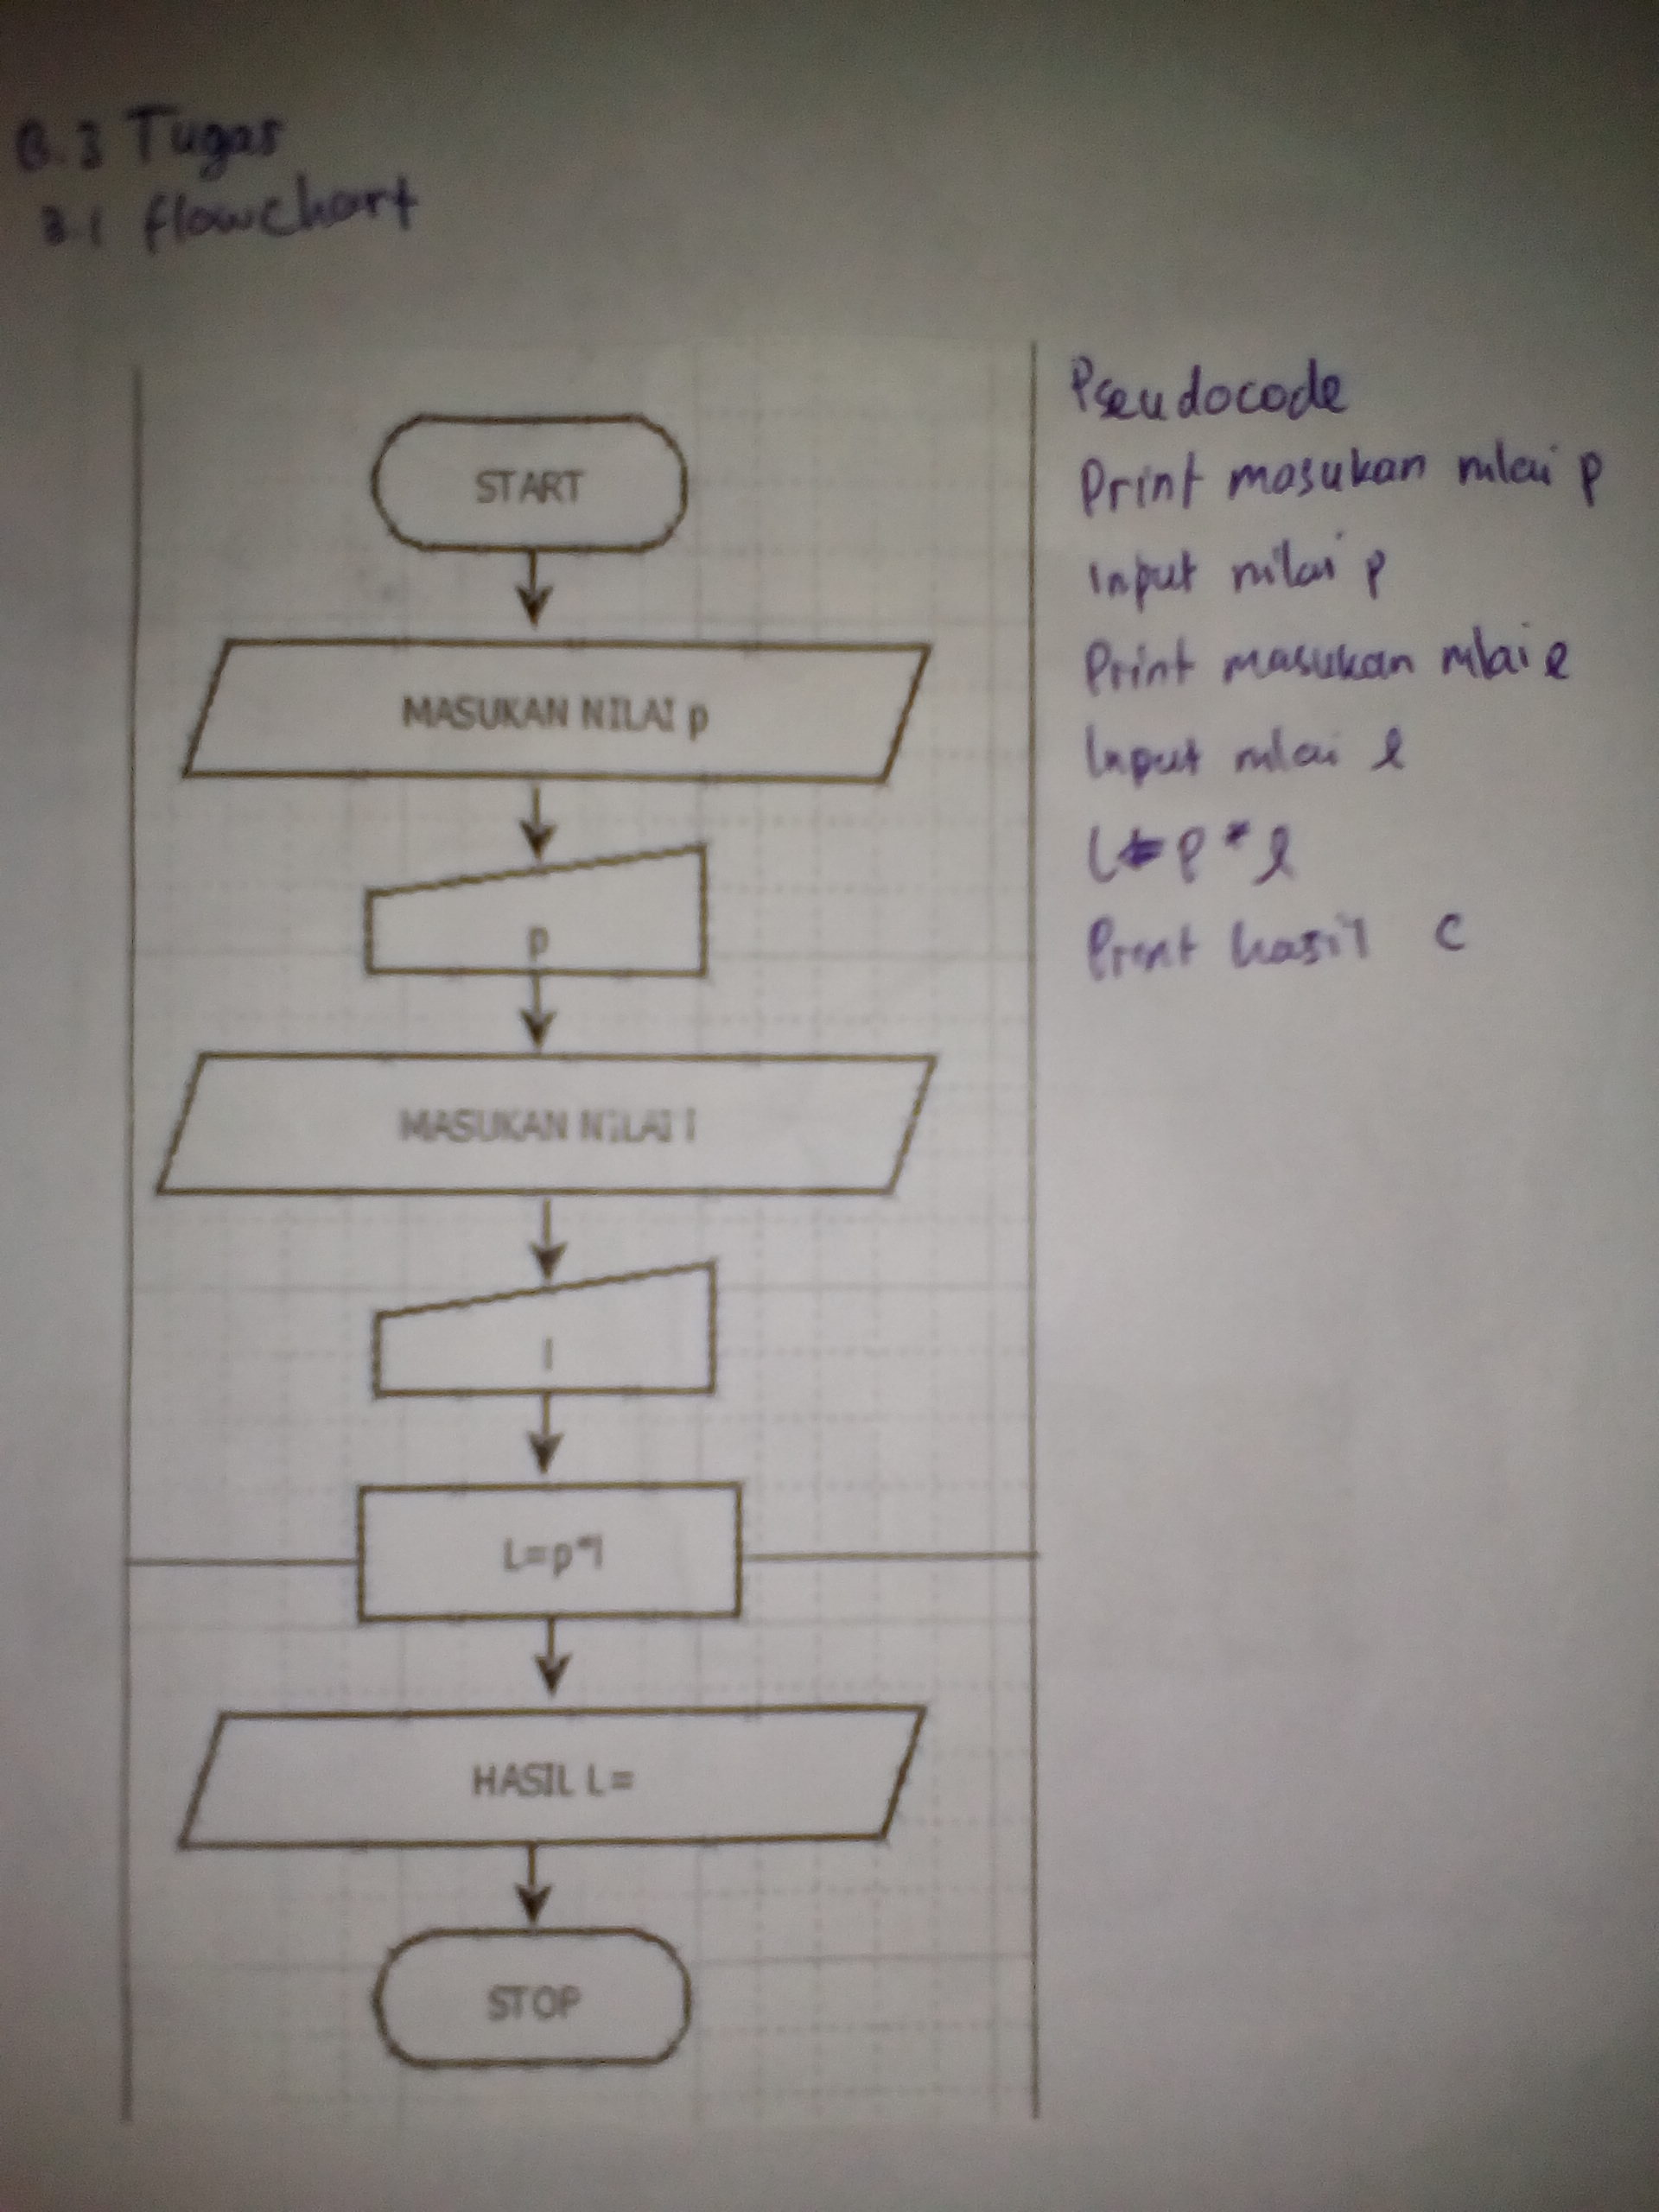 B.3 Tugas
3.1 flowchart
START
MASUKAN NILAI p
p
MASUKAN NILAI l
l
L=p*l
HASIL L=
STOP
Pseudocode
Print masukan nilai p
Input nilai p
Print masukan nilai l
Input nilai l
L = p * l
Print hasil